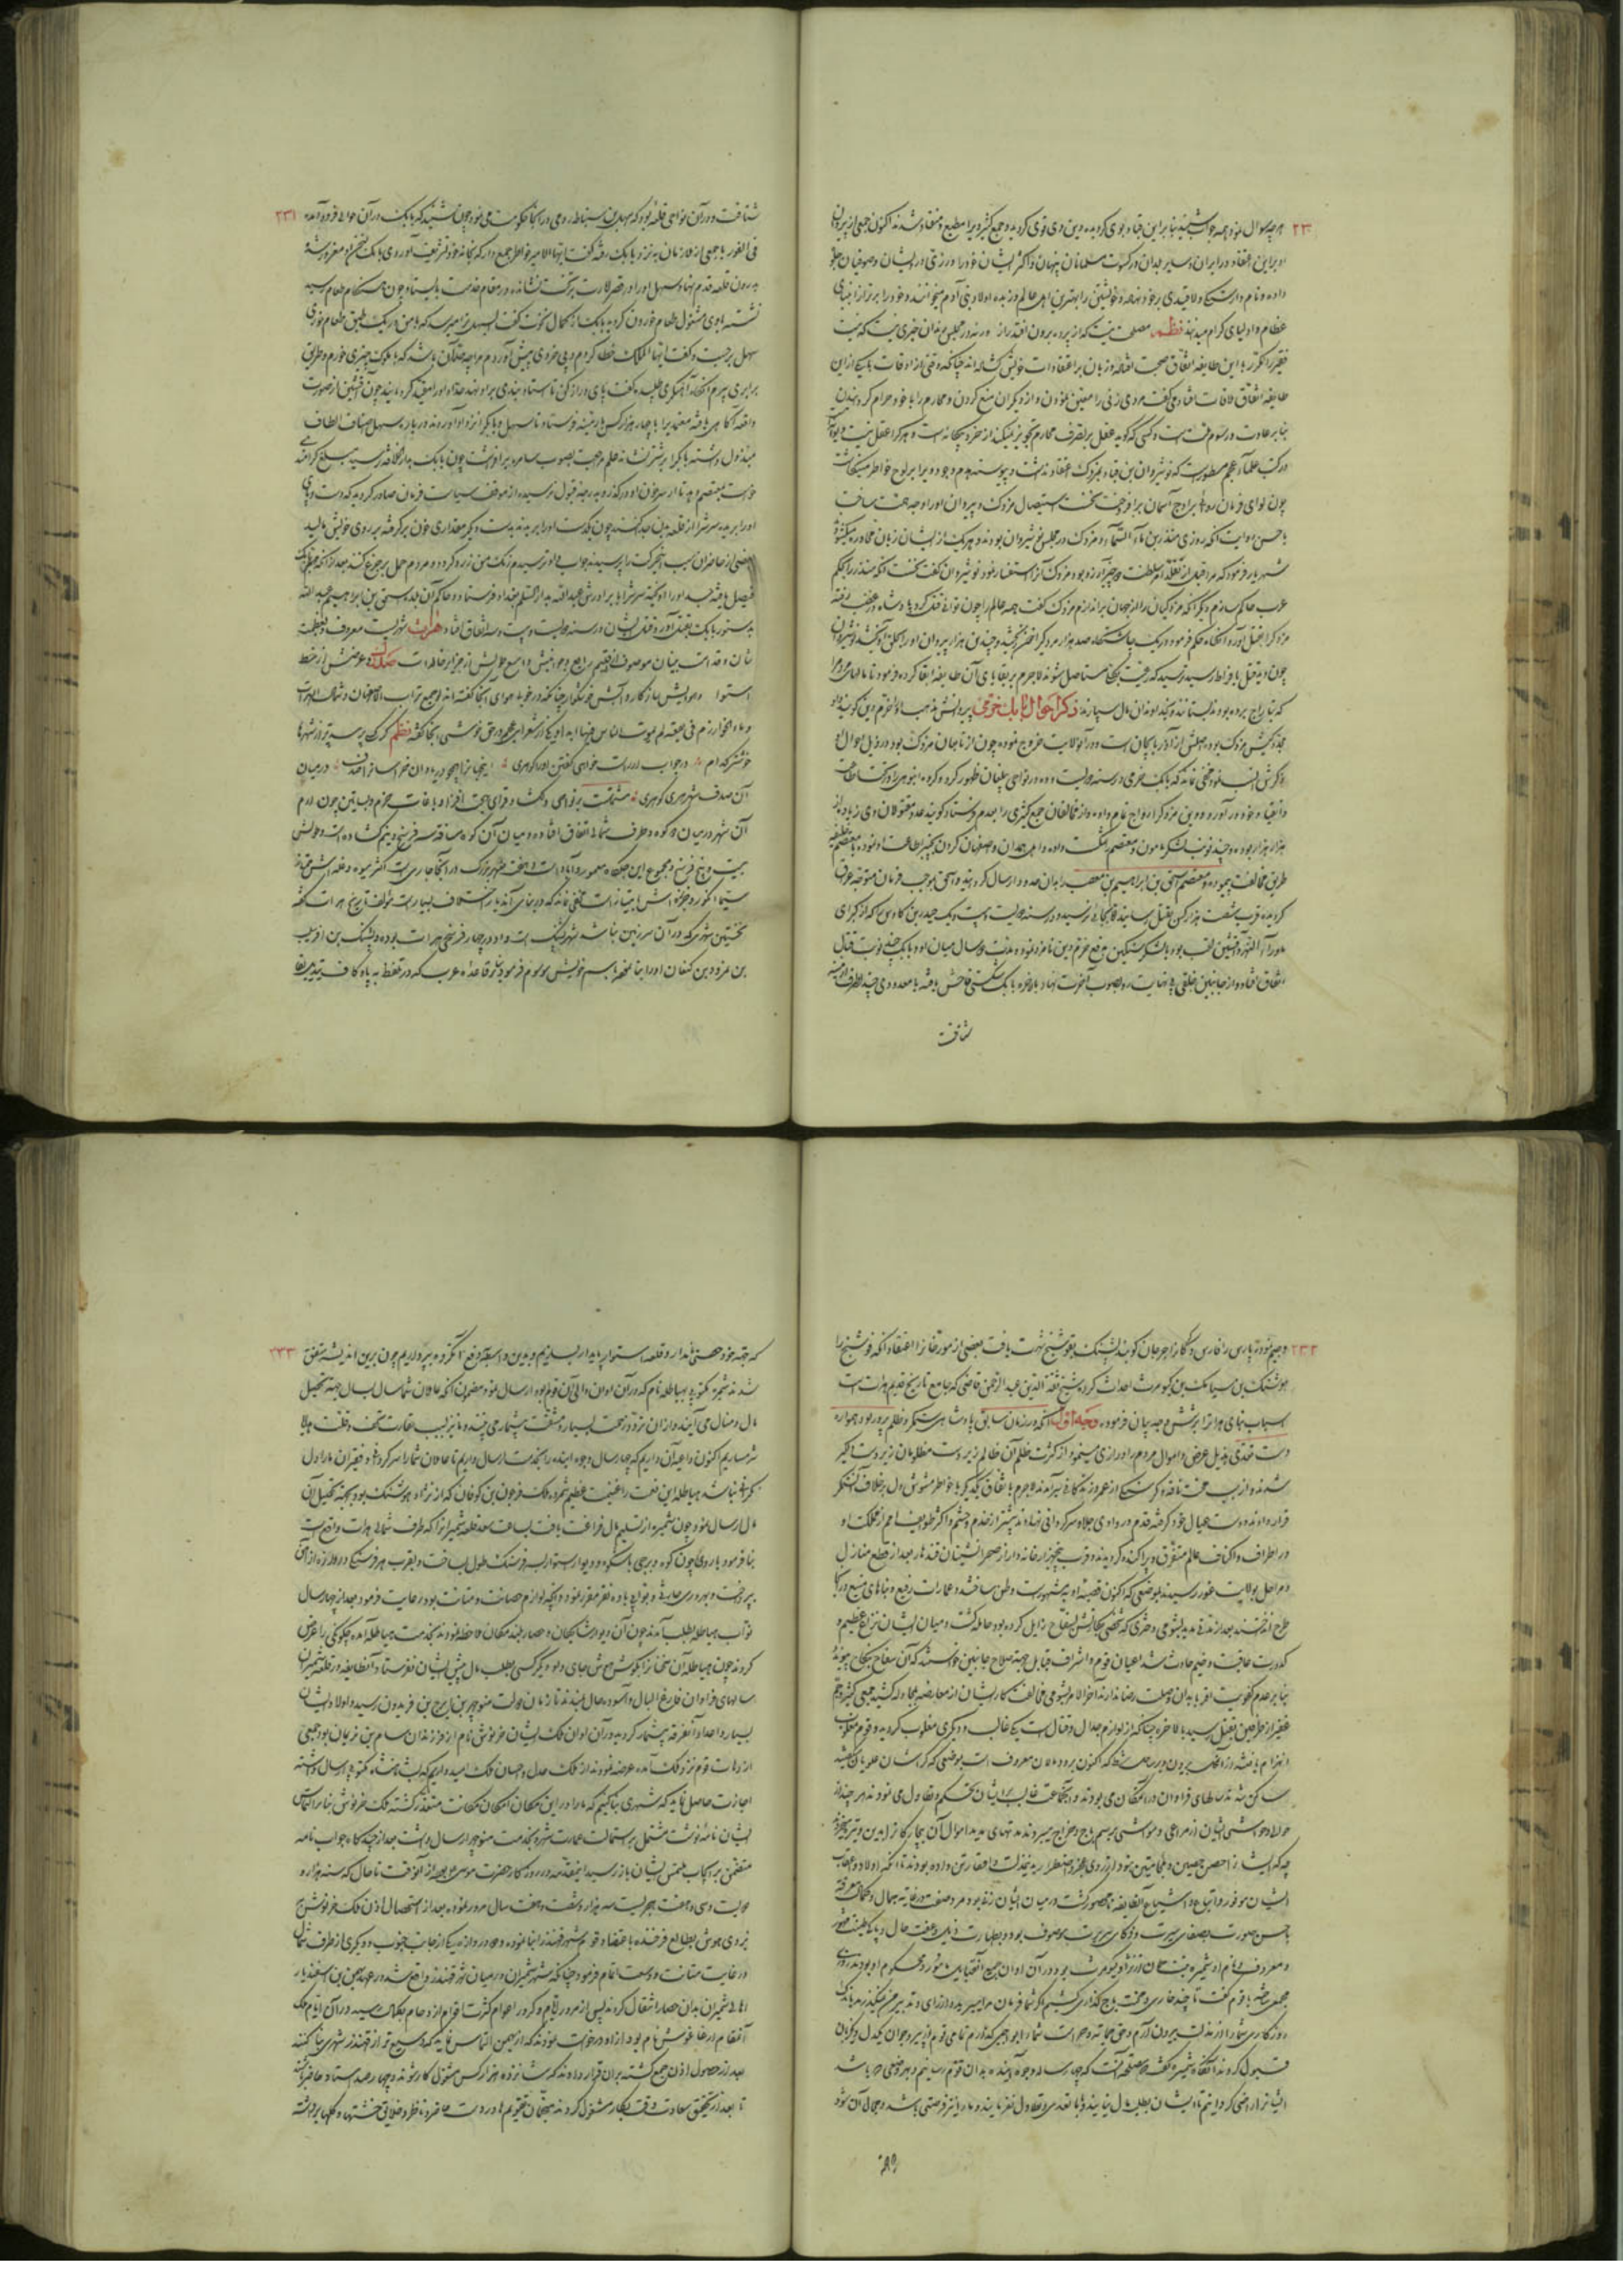 ۲۳۰
هر چه سوال نمود همه جواب شنید بنابراین قباد بوی کرویده و دین وی قوی کردید و جمع کثیر ویرا مطیع و منقاد شدند اکنون جمعی از پیروان
او براین اعتقاد در ایران و سایر بلدان در کسوت مسلمانان پنهان و اکثر ایشان خود را در زی درویشان و صوفیان جلوه
داده و نام وارستگی و لاقیدی بر خود نهاده و خویشتن را بهترین اهل عالم و زبده اولاد بنی آدم میخوانند و خود را برتر از انبیای
عظام و اولیای کرام میدانند نظم مصلحت نیست که از پرده برون افتد راز ورنه در مجلس رندان خبری نیست که نیست
فقیر را مکرر با این طایفه اتفاق صحبت افتاده و زبان بر اعتقادات خویش کشاده اند چنانکه وقتی از اوقات با یکی از این
طایفه اتفاق ملاقات افتاد میگفت مردی زنی را معین نمودن و از دیگران منع کردن و محارم را با خود حرام کردانیدن
بنابر عادت و رسوم است و کسی که گوید عقل بر تصرف محارم تجویز نمیکند از خرد بیگانه است و هر کرا عقل نیست دیوانه
در کتب علماء عجم مسطور است که نوشیروان بن قباد بمزدک اعتقاد نداشت و پیوسته عدم وجود ویرا بر لوح خاطر مینگاشت
چون لوای فرمان روائی بر اوج آسمان برافروخت نخست استیصال مزدک و پیروان او را وجهه همت ساخت
باحسن روایت آنکه روزی منذر بن ماء السماء و مزدک در مجلس نوشیروان بودند و هر یک از ایشان زبان محاوره میکشود
شهریار فرمود که مرا قبل از تقلد امر سلطنت دو چیز آرزو بود مزدک آنرا استفسار نمود نوشیروان گفت نخست آنکه منذر را بحکم
عرب حاکم سازم دیگر آنکه مزدکیان را از جهان براندازم مزدک گفت همه عالم را چون توانی قتل کرد پادشاه در غضب رفته
مزدک را بقتل آورد آنگاه حکم فرمود در یک چاشتگاه صد هزار مزدکی را خنجر بخشید و چندین هزار پیروان او را بحلق آویختند نوشیروان
چون دید قتل بافراط رسید ترسید که رعیت بکلی مستاصل شوند لاجرم بر بقایای آن طایفه ابقا کرده فرمود تا مالهای مردم را
که بتاراج برده بودند بستانند و بخداوندان مال سپارند ذکر احوال بابک خرمی پیروانش مذهب او را خرم دین گویند او
مجدد کیش مزدک بود و اصلش از آذربایجان است و در آن ولایت خروج نموده چون از تابعان مزدک بود در ذیل احوال او
ذکرش لازم نمود مخفی نماند که بابک خرمی در سنه دویست و دو در نواحی بیلقان ظهور کرده کروه انبوهی را در تحت اطاعت
و انقیاد خود در آورده و دین مزدک را رواج تمام داده و از مخالفان جمع کثیری را بعدم فرستاد گویند عدد مقتولان وی زیاده از
هزار هزار بوده و چند نوبت لشکر مامون و معتصم شکست داده و اهل همدان و صفهان کردن بچنبر اطاعت او نموده با معتصم خلیفه
طریق مخالفت پیموده و معتصم اسحق بن ابراهیم بن مصعب را بدان حدود ارسال کردانید و اسحق بموجب فرمان متوجه عراق
کردیده قریب شصت هزار کس بقتل رسانید فاما بجائی نرسید و در سنه دویست و بیست و یک حیدر بن کاوس که از کبرای
ماوراء النهر و افشین لقب بود با لشکر سنگین بدفع خرم دین نامزد نموده و مدت دو سال میان او و بابک چند نوبت قتال
اتفاق افتاد و از جانبین خلقی بی نهایت رو بصوب آخرت نهاد بالاخره بابک شکستی فاحش یافته با معدودی چند بطرف ارمنیه
شتافت
۲۳۱
شتافت و در آن نواحی قلعه بود که سهل بن سنباط رومی در آنجا حکومت می نمود چون شنید که بابک در آن حوالی فرود آمده
فی الفور با جمعی از ملازمان به نزد بابک رفته گفت ایها الامیر خاطر جمع دار که بخانه خود تشریف آوردی بابک مغرور شده
بدرون قلعه قدم نهاد و سهل او را در قصر امارت بر تخت نشانده در مقام خدمت بایستاد و چون هنگام طعام رسید
نشسته با وی مشغول طعام خوردن کردید بابک از کمال نخوت گفت ای سهل ترا میرسد که با من در یک طبق طعام خوری
سهل برجست و گفت ایها الملک خطا کردم و بی خردی پیش آوردم مرا چه حد آن باشد که با ملوک چیزی خورم و طریق
برابری سپرم آنگاه آهنگری طلبیده گفت پای دراز کن تا استاد بندی بر او نهد حداد او را مقید کردانید چون افشین از صورت
واقعه آگاهی یافته معتمدی را با چهار هزار کس بارمنیه فرستاد تا سهل و بابک را نزد او آوردند و درباره سهل اصناف الطاف
مبذول داشته بابک را بر شتر نشانده علم مراجعت بصوب سامره برافراشت چون بابک بدارالخلافه رسید مبلغ گرامند
خواست بمعتصم دهد تا از سر خون او در گذرد بدرجه قبول نرسید و از موقف سیاست فرمان صادر کردید که دست و پای
او را بریده سرش را از قلعه بدن جدا کنند چون یکدست او را بریدند بدست دیگر مقداری خون بر گرفته بر روی خویش مالید
بعضی از حاضران سبب این حرکت را پرسیدند جواب داد ترسیدم رنک من زرد گردد و مردم حمل بر جزع کنند بعد از آنکه مهم بابک
فیصل یافته جسد او را آویخته سرش را با برادرش عبدالله بدارالسلام بغداد فرستاد و حاکم آن بلده اسحق بن ابراهیم عبدالله
بدستور بابک بقتل آورد و قتل ایشان در سنه دویست و بیست و سه اتفاق افتاد هرات شهریست معروف و بعظمت
شان و قدامت بنیان موصوف از اقلیم رابع و جوانبش واسع طولش از جزایر خالدات صدل و عرضش از خط
استوا و هوایش سازگار و آبش خوشگوار چنانکه در خوبی هوای آنجا گفته اند لو جمع تراب الاصفهان و شمال الهرات
و ماء الخوارزم فی بقعة لم یموت الناس فیها ابدا و یکی از شعرای عجم در حق خوشی آنجا گفته نظم کر کسی پرسد ترا از شهرها
خوشتر کدام در جواب ار راست خواهی گفتن او را گو هری اینجهانرا همچو دریا دان خراسانرا صدف در میان
آن صدف شهر هری گو هری مشتملست بر نواحی دلکش و قرای بهجت افزا و باغات خرم و بساتین چون ارم
آن شهر در میان دو کوه و طرف شمالی اتفاق افتاده و میان آن کوه مسافت سه فرسخ و نیم گشاده است و طولش
بیست و پنج فرسخ و مجموع این جلگاه معمور و آباد است و هفت نهر بزرک در آنجا جاری است اکثر میوه و غله اش ممتاز
سیما انگور و خربزه اش با امتیاز است مخفی نماند که در بنای آن دیار اختلاف بسیار است مولف تاریخ هرات گفته
نخستین شهری که در آن سرزمین بنا شد شهر پشنگ است و او در چهار فرسخی هرات بوده و پشنگ بن افراسیاب
بن نمرود بن کنعان او را بنا نهاد باسم خویش موسوم فرمود بنابر قاعده عرب که در تلفظ به پاء کاف تبدیل بفا
۲۳۲
و جیم نمودند پارس را فارس و گرگانرا جرجان گویند پشنگ بفوشنج شهرت یافت بعضی از مورخانرا اعتقاد آنکه فوشنج را
هوشنک بن سیامک بن کیومرث احداث کرد و شیخ ثقة الدین عبد الرحمن قاضی که جامع تاریخ قدیم هرات است
اسباب بنای هراترا بر شش وجه بیان فرموده وجه اول آنکه در زمان سابق پادشاهی ستمگر و ظلم پرور بود همواره
دست تعدی بذیل عرض و اموال مردم دراز می نمود و از کثرت ظلم آن ظالم زبردست مظلومان زیردست دلگیر
شدند و از بیم سخت فاقه و گرسنگی از عمر و زندگانی سیر آمدند لاجرم باتفاق یکدیگر با خاطر مشوش دل بر خلاف آن ستمگر
قرار داده دست عیال خود گرفته قدم در وادی جلاء سرگردانی نهادند بیشتر از خدم و حشم و اکثر طوایف امم از مملکت او
در اطراف و اکناف عالم متفرق و پراکنده کردیدند و قریب پنجهزار خانه دار از صحرانشینان قندهار بعد از قطع منازل
و مراحل بولایت غور رسیدند بموضعی که اکنون قصبه او به شهرتست وطن ساخته عمارات رفیع و بناهای منیع در آنجا
طرح انداختند بعد از مدتی مدید بشومی دختری که شخصی بکارتش بسفاح زایل کرده بود حامله گشت و میان ایشان نزاع عظیم و
کدورت عاقبت وخیم حادث شد اعیان قوم و اشراف قبایل بجهة صلاح جانبین خواستند که آن سفاح بنکاح پیوندد
بنابر عدم کفویت اقربا بدان وصلت رضا ندادند آخر الامر بشومی مخالفت کار ایشان از معارضه بمجادله کشید جمعی کثیر و جم
غفیر از طرفین بقتل رسید بالاخره چنانکه از لوازم جدال و قتال است یکی غالب و دیگری مغلوب کردید و قوم مغلوب
انهزام یافته از آنجا بیرون و بر جائی که اکنون برودمالان معروف است بموضعی که کراشان علویان کویند
ساکن شدند سالهای فراوان در آن مکان می بودند و آن جماعت غالب بر ایشان تحکم و تطاول می نمودند هر چند از
حوالی و حواشی ایشان از مراعی و مواشی برسم باج و خراج میبردند مدتهای مدید اموال آن بیچارگانرا بدین وتیره
چه که ایشانرا حصن حصین و ملجاء متین نبود از روی عجز و اضطرار بدین مذلت و احقار تن داده بودند تا آنکه اولاد و اعقاب
ایشان موفور و اتباع و اشیاع آن طایفه نامحصور گشت در میان ایشان زنی بود مردصفت در غایت جمال و کمال معرفت
باحسن صورت بصفای سیرت و ذکای سریرت موصوف بود و بطهارت ذیل و عفت حال و پاکی طینت مشهور
و معروف و نام او شمیره بنت حمان از نژاد کیومرث بود در آن اوان جمیع آن قبایل مامور و محکوم او بودند روزی
جمعی ساخته با قوم گفت تا چند خواری و محنت باج گذاری کشیم اگر شما فرمان مرا میبرید و از رای و تدبیر من میگذرید باندک
روزگاری شما را از مذلت بیرون آرم و حق حمایة و حراست شما را بوجهی گذارم تمامی قوم از پیر و جوان یکدل و یکزبان
قبول کردند آنگاه شمیره گفت صلاح آنست که چهار ساله وجوه آینده بدان قوم رسانیم و بهر وضعی که باشد
ایشانرا راضی کردانیم تا ایشان بطلب مال نیایند و پا بتعدی و تطاول نفرسایند و ما را نیز فرصتی باشد و مجال آن شود
که
۲۳۳
که جهة خود حصنی استوار و قلعه استوار پایدار بسازیم و بدین واسطه دفع آنگروه بر داریم چون برین اندیشه متفق
شدند شمیره مکتوبی بهیاطله نام که در آن اوان والی آن قوم بود ارسال نمود مضمون آنکه عاملان شما سال بسال جهة تحصیل
مال و منال می آیند و از آن تردد زحمت بسیار و مشقت بیشمار می بینند و ما نیز بسبب حقارت تحف و قلت هدایا
شرمساریم اکنون داعیه آن داریم که چهار ساله وجوه آینده را بخدمت ارسال داریم تا عاملان شما را سرگردانی و فقیران ما را دل
گرانی نباشد هیاطله این نعمت را غنیمت عظیم شمرده ملک فرجون بن کوخان که از نژاد هوشنک بود بجهة تحصیل آن
مال ارسال نمود چون شمیره از تسلیم مال فراغت یافت بساخت قلعه شمیرانرا که طرف شمالی هرات واقع است
بنا فرمود باروئی چون کوه و برجی باشکوه و دیوار استوار دو فرسنک طول بساخت و بقرب هر فرسنگی دروازه از آهن
پرداخت و بهر دری حارثی و نوابی با ده نفر مقرر نمود و آنچه لوازم حصانت و متانت بود رعایت فرمود بعد از چهار سال
نواب هیاطله بطلب آمدند چون آن دیوار شایگان و حصار بلند مکان ملاحظه نمودند بخدمت هیاطله آمده چگونگی را عرض
کردند چون هیاطله آن سخن را بگوش هوش جای داد دیگر کسی بطلب مال پیش ایشان نفرستاد آن طایفه در قلعه شمیران
سالهای فراوان فارغ البال و آسوده حال میبودند تا زمان دولت منوچهر بن ایرج بن فریدون رسید و اولاد ایشان
بسیار و اعداد آن فرقه بیشمار کردید در آن اوان ملک ایشان خرنوش نام از فرزندان سام بن نریمان بود جمعی
از دهات قوم نزد ملک آمده عرضه نمودند از ملک عدل و احسان ملک امیدواریم که بشاهنشاه مکتوبی ارسال داشته
اجازت حاصل نماید که شهری بنا کنیم که ما را در این مکان امکان مکانت متعذر گشته ملک خرنوش بنابر التماس
ایشان نامه نوشت مشتمل بر استمالت عمارت شهر و بخدمت منوچهر ارسال داشت بعد از چند گاه جواب نامه
متضمن بر ایجاب ملتمس ایشان باز رسید اینمقدمه در روزگار حضرت موسی بود از آن وقت تا حال که سنه هزار و
دویست و سی و هفت هجریست سه هزار و شصت و هفت سال مرور نموده بعد از استحصال اذن ملک خرنوش
ز روی هوش بطالع فرخنده باعتضاد قوم شهر قهندز را بنا نموده و چهار دروازه یکی از جانب جنوب و دیگری از طرف شمال
در غایت متانت و وسعت اتمام فرمود چنانکه شهر شمیران در میان شهر قهندز واقع شد در عهد بهمن بن اسفندیار
اهالی شمیران بدان حصار انتقال کردند پس از مرور ایام و کرور اعوام کثرت اقوام و ازدحام بکمال رسید در آن ایام ملک
آنقوم ارغاغوش نام بود از او درخواست نمودند که از بهمن التماس نماید که وسیع تر از قهندز شهری بنا کنند
بعد از حصول اذن جمع گشته بران قرار دادند که شانزده هزار کس مشغول کار شوند و چهار صد استاد حاضر باشند
تا بعد از تحقق سعادت وقت بکار مشغول کردند منجمان تقویم ها در دست حاضر و ناظر و خلایق خشتها و گلها برداشته